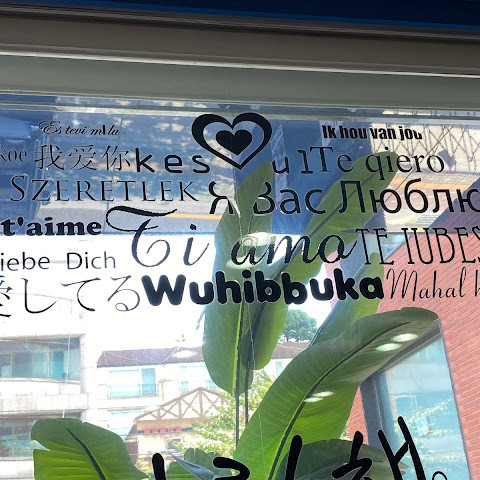 Es tevi mīlu
Ik hou van jou
我爱你 kes u 1 Te qiero
SZERETLEK Я Вас Люблю
t'aime Ti amo TE IUBES
iebe Dich
愛してる Wuhibbuka Mahal